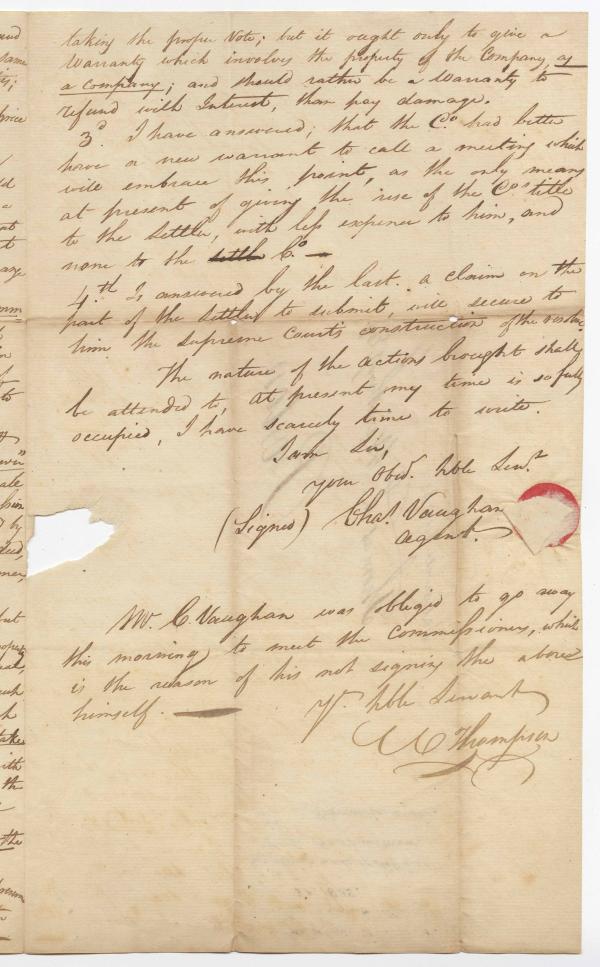 taking the proper Vote; but it ought only to give a
Warranty which involves the property of the Company as
a company; and should rather be a Warranty to
refund with Interest, than pay damage.
3d. I have answered; that the Co. had better
have a new warrant to call a meeting which
will embrace this point, as the only means
at present of giving the rise of the Cos title
to the Settler, with less expence to him, and
none to the Co.
4th Is answered by the last. a claim on the
part of the Settler to submit, will secure to
him the Supreme Courts construction of the
The nature of the actions brought shall
be attended to, at present my time is so fully
occupied, I have scarcely time to write.
I am Sir,
your Obed. Hble Servt.
(Signed) Chas. Vaughan
agent.
Mr. C. Vaughan was obliged to go away
this morning to meet the Commissioners, which
is the reason of his not signing the above
himself.
Yr. Hble Servant
Thompson